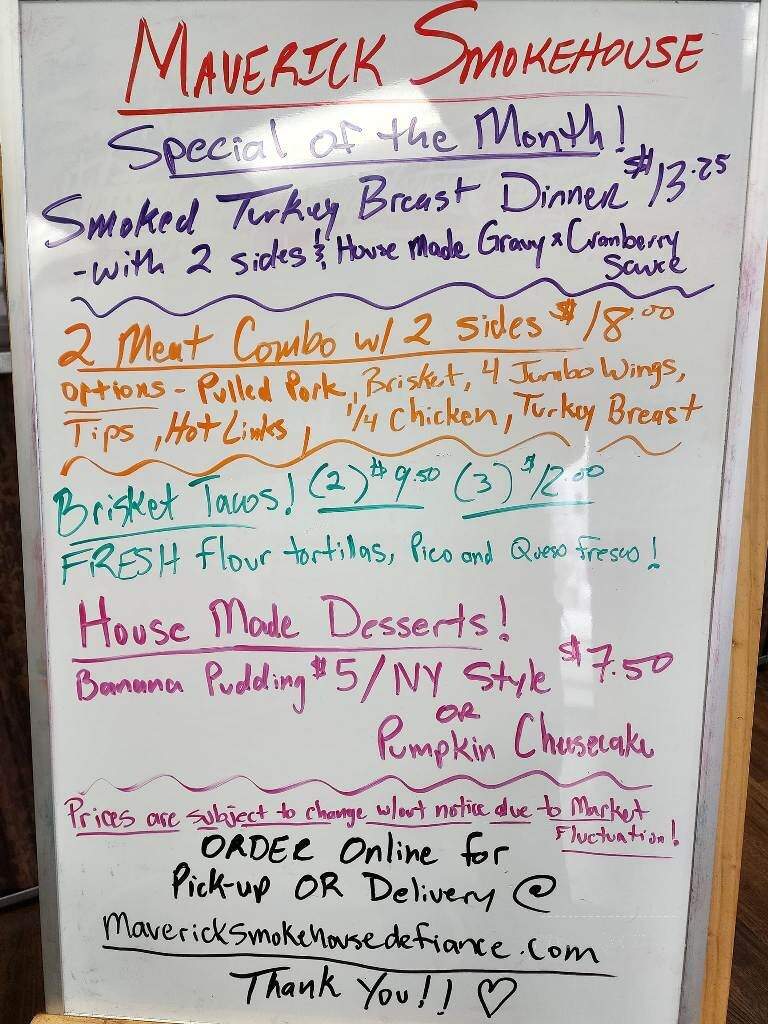 MAVERICK SMOKEHOUSE
Special of the Month!
Smoked Turkey Breast Dinner $13.25
-with 2 sides & House Made Gravy & Cranberry
Sauce
2 Meat Combo w/ 2 sides $18.00
OPTIONS - Pulled Pork, Brisket, 4 Jumbo Wings,
Tips, Hot Links, 1/4 Chicken, Turkey Breast
Brisket Tacos! (2) $9.50 (3) $12.00
FRESH flour tortillas, Pico and Queso fresco!
House Made Desserts!
Banana Pudding $5/NY Style $7.50
OR
Pumpkin Cheesecake
Prices are subject to change w/out notice due to Market
Fluctuation!
ORDER Online for
Pick-up OR Delivery @
Mavericksmokehousedefiance.com
Thank You!! ♡